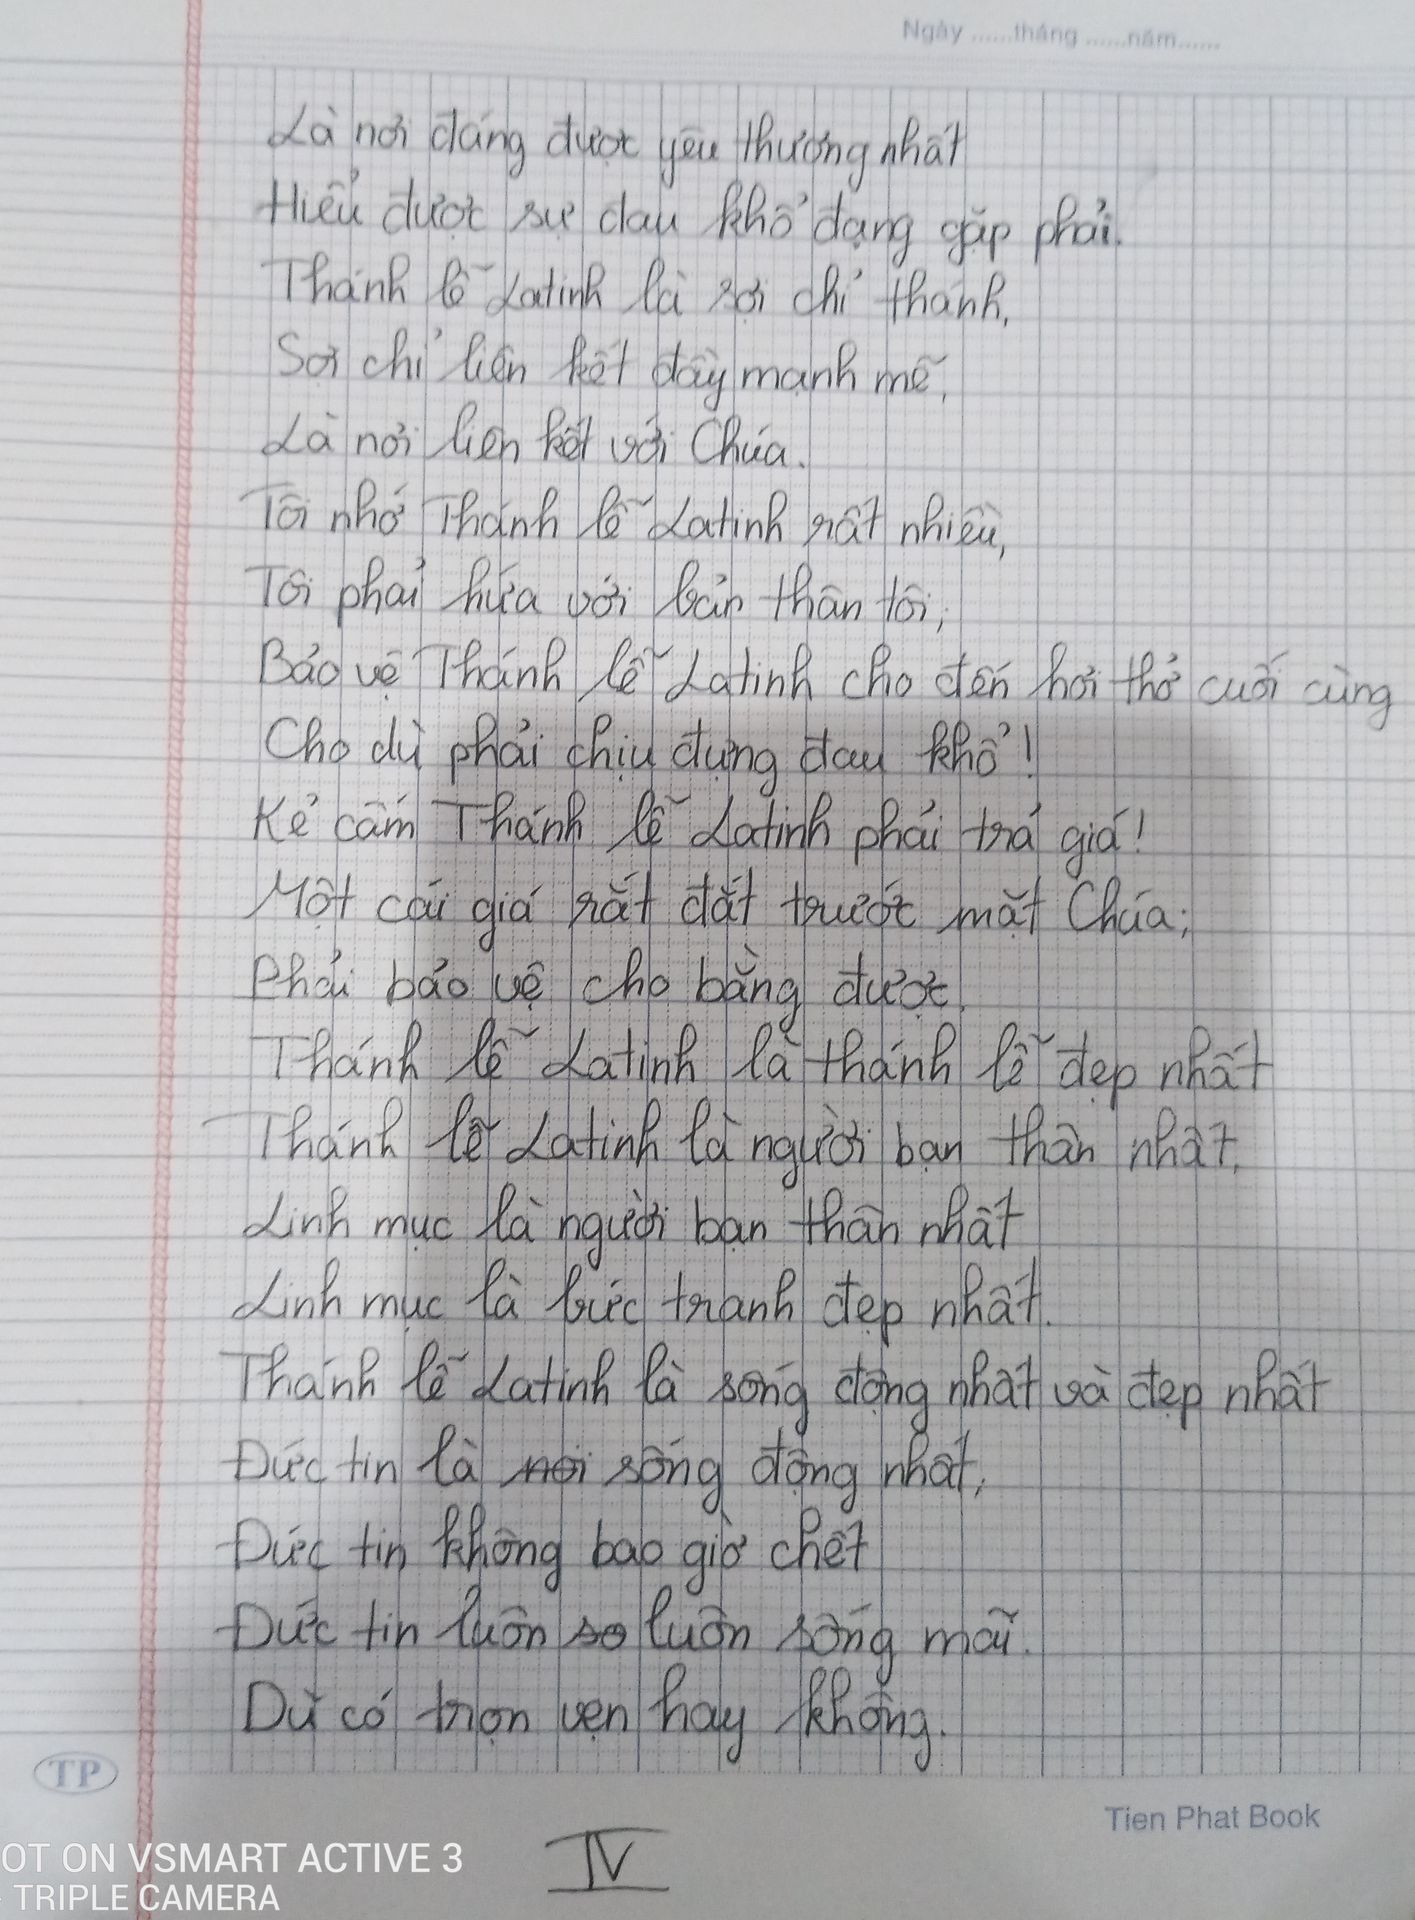 Ngày ......tháng ......năm......
Là nơi đáng được yêu thương nhất
Hiểu được sự đau khổ đang gặp phải.
Thánh lễ Latinh là sợi chỉ thánh,
Sợi chỉ liên kết đầy mạnh mẽ,
Là nơi liên kết với Chúa.
Tôi nhớ Thánh lễ Latinh rất nhiều,
Tôi phải hứa với bản thân tôi;
Bảo vệ Thánh lễ Latinh cho đến hơi thở cuối cùng
Cho dù phải chịu đựng đau khổ!
Kẻ cấm Thánh lễ Latinh phải trả giá!
Một cái giá rất đắt trước mặt Chúa;
Phải bảo vệ cho bằng được.
Thánh lễ Latinh là thánh lễ đẹp nhất
Thánh lễ Latinh là người bạn thân nhất.
Linh mục là người bạn thân nhất
Linh mục là bức tranh đẹp nhất.
Thánh lễ Latinh là sống động nhất và đẹp nhất
Đức tin là nơi sống động nhất,
Đức tin không bao giờ chết
Đức tin luôn so luôn sống mãi.
Dù có trọn vẹn hay không.
TP
Tien Phat Book
OT ON VSMART ACTIVE 3
TRIPLE CAMERA
IV